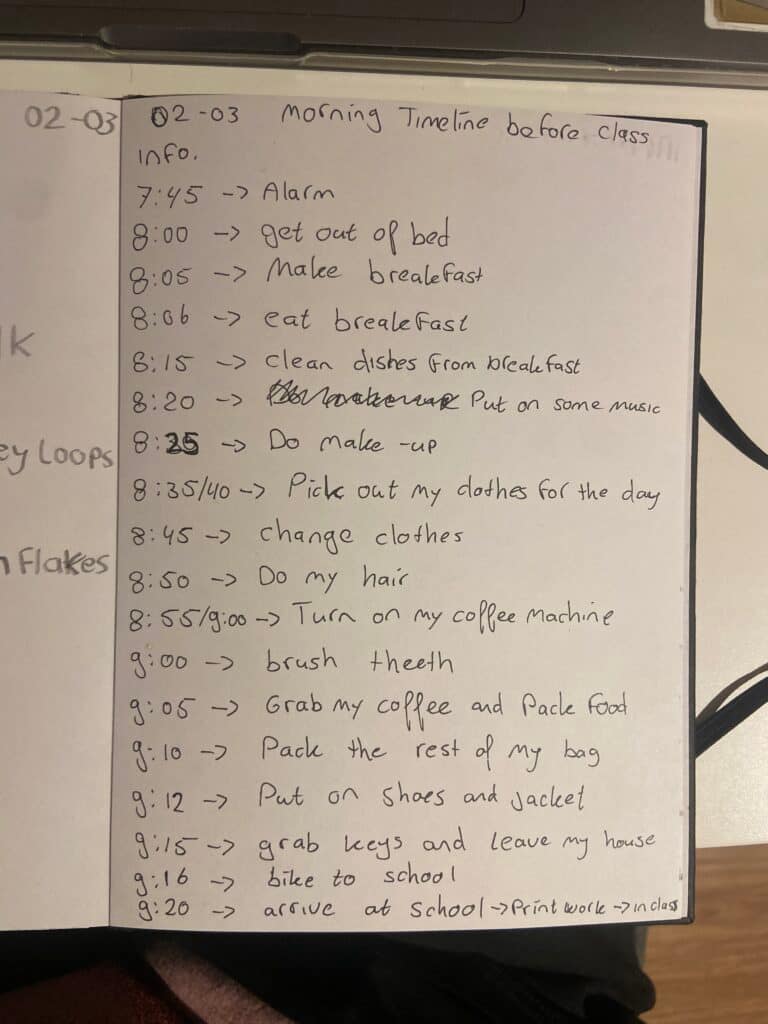 02-03
lk
ey Loops
n Flakes
02-03 Morning Timeline before class
info.
7:45 -> Alarm
8:00 -> get out of bed
8:05 -> Make breakfast
8:06 -> eat breakfast
8:15 -> clean dishes from breakfast
8:20 -> Put on some music
8:25 -> Do make-up
8:35/40 -> Pick out my clothes for the day
8:45 -> change clothes
8:50 -> Do my hair
8:55/9:00 -> Turn on my coffee machine
9:00 -> brush theeth
9:05 -> Grab my coffee and Pack food
9:10 -> Pack the rest of my bag
9:12 -> Put on shoes and jacket
9:15 -> grab keys and leave my house
9:16 -> bike to school
9:20 -> arrive at school -> Print work -> in class